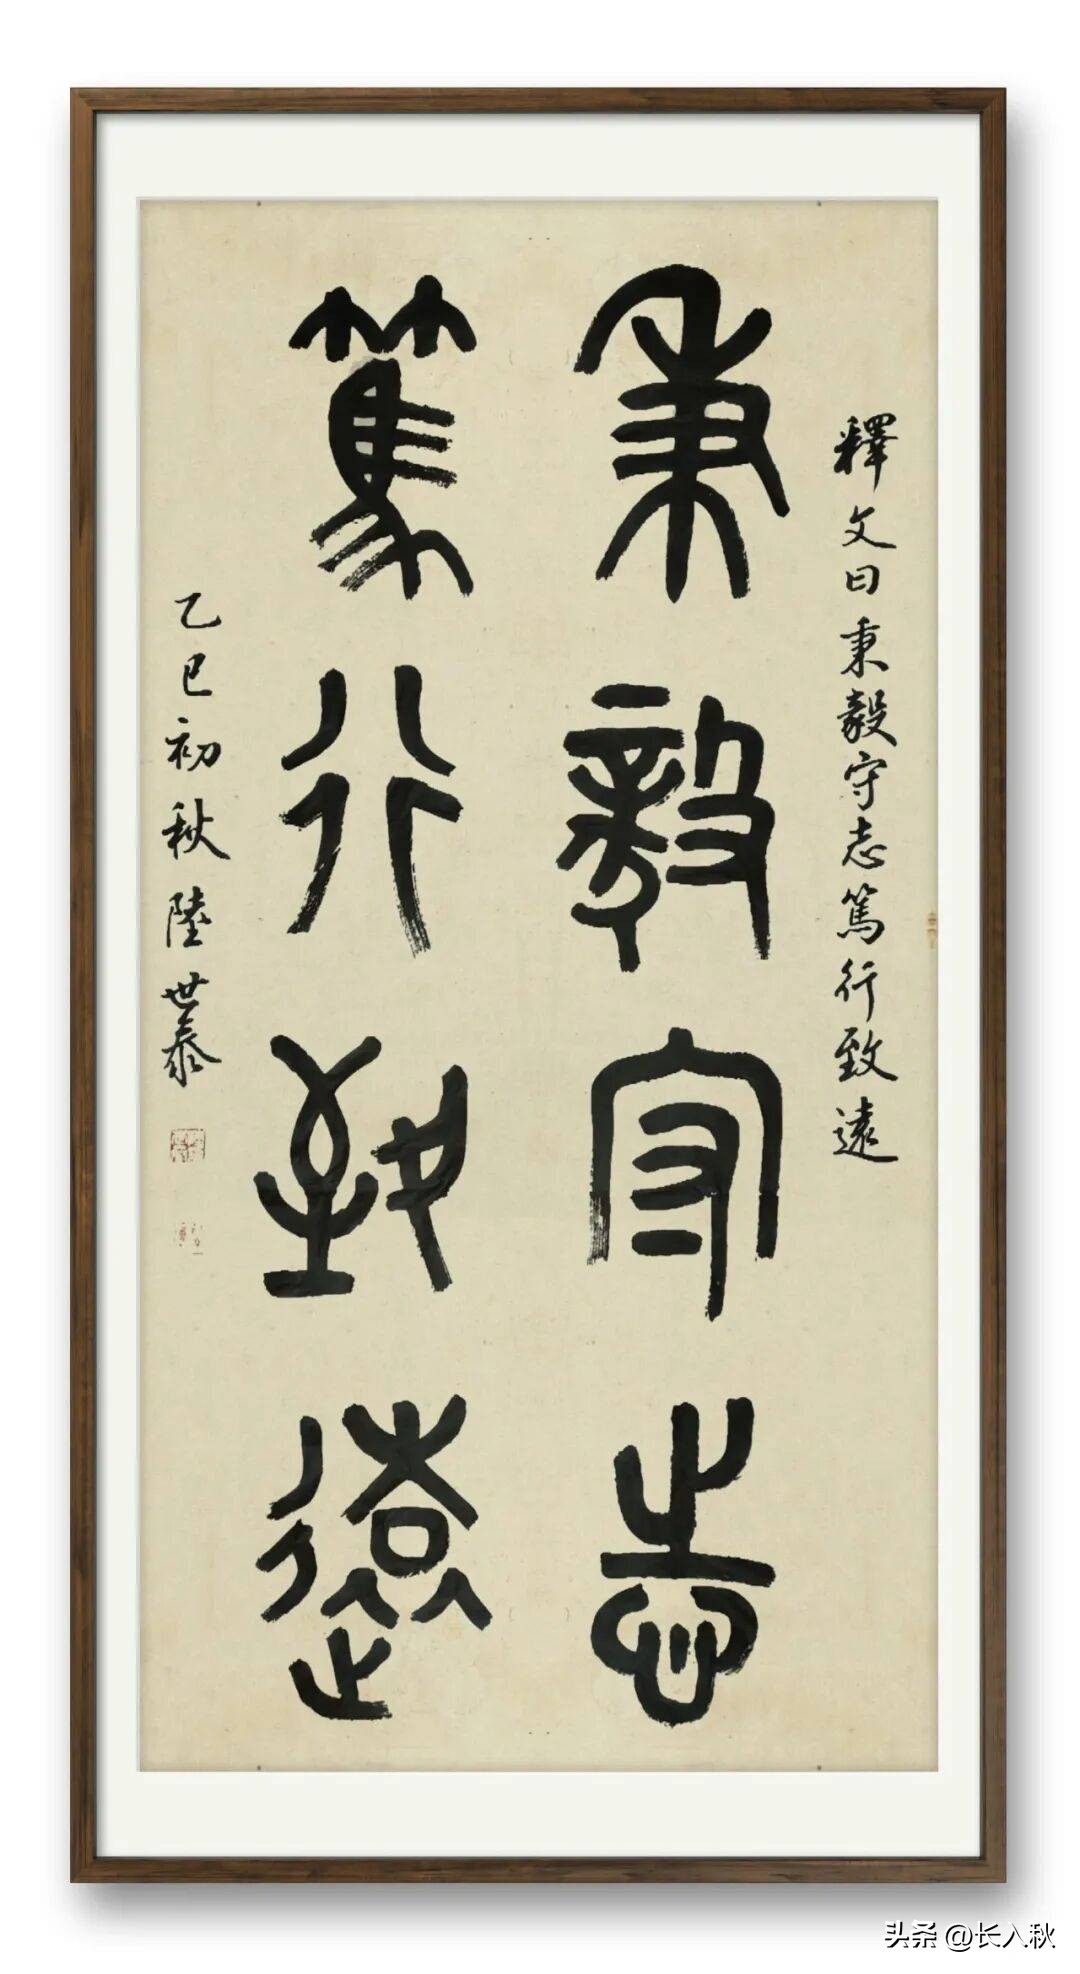 釋文曰秉毅守志篤行致遠
秉毅守志
篤行致遠
乙巳初秋陸世泰
头条 @长入秋